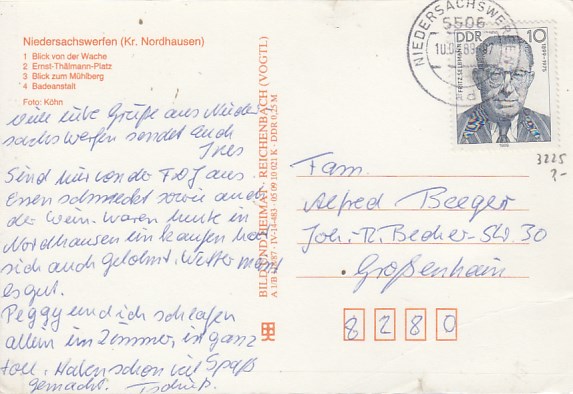 Niedersachswerfen (Kr. Nordhausen)
1 Blick von der Wache
2 Ernst-Thälmann-Platz
3 Blick zum Mühlberg
4 Badeanstalt
Foto: Köhn
viele liebe Grüße aus Nieder-
sachswerfen sendet euch
Ines
Sind hier von der FDJ aus.
Essen schmeckt sowie auch
der Wein. Waren heute in
Nordhausen einkaufen hat
sich auch gelohnt. Wetter
es gut.
Peggy und ich schlafen
allein im Zimmer, ist ganz
toll. Haben schon viel Spaß
gemacht. Tschüß.
BILD UND HEIMAT · REICHENBACH (VOGTL)
A 1/B IV-14-483 · 05 09 10 021 K · DDR 0,25 M
NIEDERSACHSWERFEN
5506
DDR 10
3225
Fam.
Alfred Beeger
Joh.-R. Becher-Str. 30
Großenhain
8280